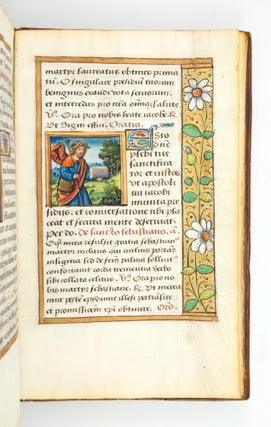 martyr laureatus obtines prima
tu. O singulare presidiu tuorum
benignus exaudi vota servorum,
et intercedas pro nra omniu salute.
V. Ora pro nobis beate iacobe. R.
Ut digni effici. Oratio.
Esto
dne
plebi tue
sanctifica
tor et custos
ut apostoli
tui iacobi
munita pre
sidiis, et conversatione tibi pla
ceat et secura mente deserviat.
Per do. de sancto sebastiano. a.
O qm mira refulsit gratia sebastian'
martyr inclitus qui militis portans
insignia sed de frm palma sollicit'
confortavit corda verbo
sibi collato celitus. V. Ora pro no
bis martyr sebastiane. R. Ut mere
mur peste illesi pertransire
et promissionem xpi obtinere. Oro.